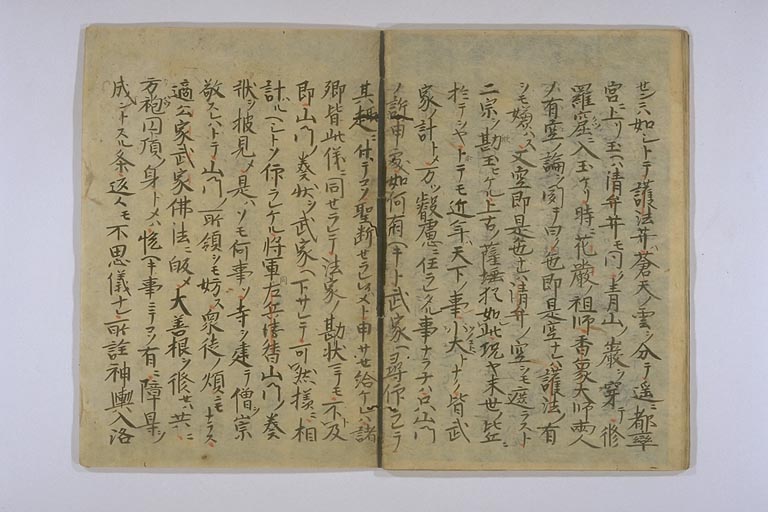 セニハ如シトテ護法井蒼天ノ雲ヲ分テ遥ニ都率
宮ニ上リ玉ヘハ清弁井モ同ク青山ノ巌ヲ穿テ修
羅窟ニ入玉ケリ時ニ花厳ノ祖師香象大師両人
メ有空ノ論ヲ聞テ曰ク色即是空ナレハ護法ノ有
ヲモ嫌ハス又空即是色ナレハ清弁ノ空ヲモ遮ラスト
二宗ヲ勘玉ヒケル上古ノ薩埵猶如此況ヤ末世ノ比丘ニ
於テヲヤトテモ近年天下ノ事小大トナク皆武
家ノ計トメ万ツ叡慮ニ任ラレタル事ナラネハ只山門
ノ訴申処如何有ヘキト武家ヘ尋仰ラレテ
其趣ニ付テコソ聖断セラレメト申サセ給ケレハ諸
卿皆此儀ニ同セラレテ法家ノ勘状ニモ不及
即山門ノ奏状ヲ武家ヘ下サレテ可然様ニ相
計ルヘシトソ仰ラレケル将軍左兵衛督山門ノ奏
状ヲ披見メ是ハソモ何事ソ寺ヲ建テ僧ヲ崇
敬スレハトテ山門ノ所領ヲモ妨ス衆徒ノ煩ニモナラス
適公家武家佛法ニ皈メ大善根ヲ修セハ共ニ
方袍円頂ノ身トメハ悦ヘキ事ニテコソ有ニ障㝵ヲ
成ントスル条返々モ不思儀ナレ所詮神輿入洛